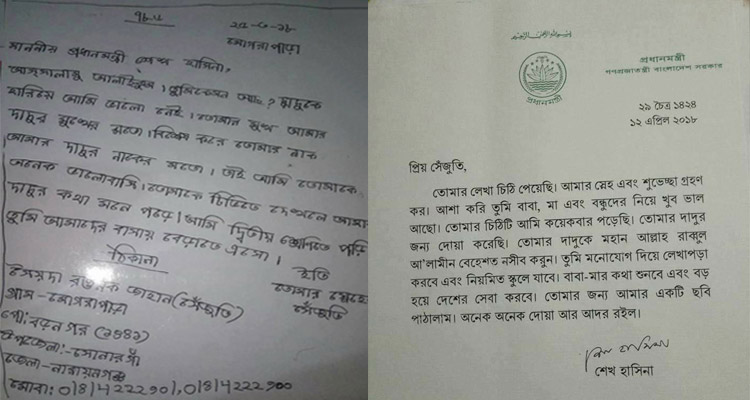 ৭৮৬
২৫-৩-১৮
মোগরাপাড়া
মাননীয় প্রধানমন্ত্রী শেখ হাসিনা,
আসসালামু আলাইকুম। তুমি কেমন আছ? দাদুকে
হারিয়ে আমি ভালো নেই। তোমার মুখ আমার
দাদুর মুখের মতো। বিশেষ করে তোমার নাক
আমার দাদুর নাকের মতো। তাই আমি তোমাকে
অনেক ভালোবাসি। তোমাকে টিভিতে দেখলে আমার
দাদুর কথা মনে পড়ে। আমি দ্বিতীয় শ্রেণিতে পড়ি
তুমি আমাদের বাসায় বেড়াতে এসো।
ঠিকানা
ইতি
তোমার স্নেহের
সৈয়দা রওনক জাহান (সেঁজুতি)
সেঁজুতি
গ্রাম-মোগরাপাড়া
পো: বড়নগর (১৪৪১)
উপজেলা:-সোনারগাঁ
জেলা-নারায়নগঞ্জ
প্রধানমন্ত্রী
প্রধানমন্ত্রী
গণপ্রজাতন্ত্রী বাংলাদেশ সরকার
২৯ চৈত্র ১৪২৪
১২ এপ্রিল ২০১৮
প্রিয় সেঁজুতি,
তোমার লেখা চিঠি পেয়েছি। আমার স্নেহ এবং শুভেচ্ছা গ্রহণ
কর। আশা করি তুমি বাবা, মা এবং বন্ধুদের নিয়ে খুব ভাল
আছো। তোমার চিঠিটি আমি কয়েকবার পড়েছি। তোমার দাদুর
জন্য দোয়া করেছি। তোমার দাদুকে মহান আল্লাহ রাব্বুল
আ'লামীন বেহেশত নসীব করুন। তুমি মনোযোগ দিয়ে লেখাপড়া
করবে এবং নিয়মিত স্কুলে যাবে। বাবা-মার কথা শুনবে এবং বড়
হয়ে দেশের সেবা করবে। তোমার জন্য আমার একটি ছবি
পাঠালাম। অনেক অনেক দোয়া আর আদর রইল।
শেখ হাসিনা